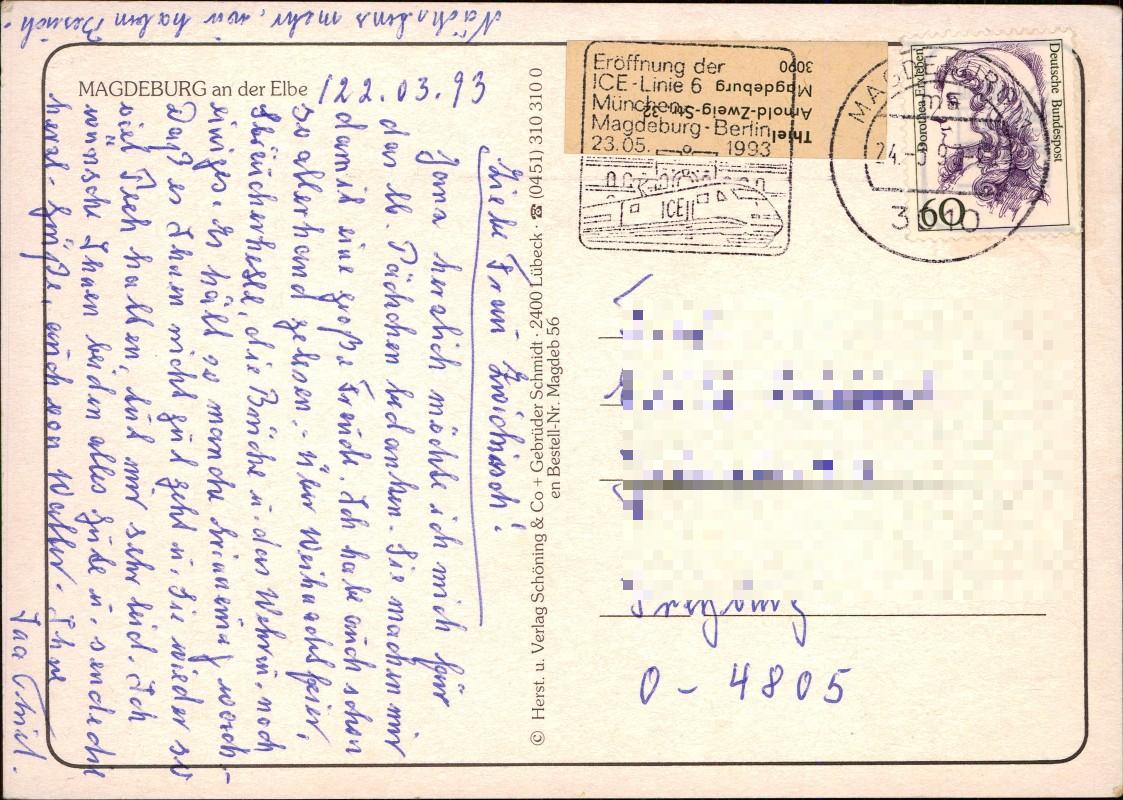 MAGDEBURG an der Elbe
122.03.93
Liebe Frau
Ganz herzlich möchte ich mich für
das lb. Päckchen bedanken. Sie machen mir
damit eine große Freude. Ich habe auch schon
so allerhand gelesen.
die Brücke u. das Wehr u. noch
einiges. Es hält so manche Erinnerung wach.
Daß es Ihnen nicht gut geht u. Sie wieder so
viel Pech hatten, tut mir sehr leid. Ich
wünsche Ihnen beiden alles Gute u. sende die
herzl. Grüße, auch von Walter. Ihre
Thiel.
Nächstens mehr, wir haben Besuch.
© Herst. u. Verlag Schöning & Co + Gebrüder Schmidt · 2400 Lübeck · ☎ (0451) 310 310 0
en Bestell-Nr. Magdeb 56
Eröffnung der
ICE-Linie 6
München
Magdeburg-Berlin
23.05. 1993
ICE
Thiel
Arnold-Zweig-Str. 32
Magdeburg
3090
MAGDEBURG
Dorothea Erxleben
Deutsche Bundespost
60
O - 4805